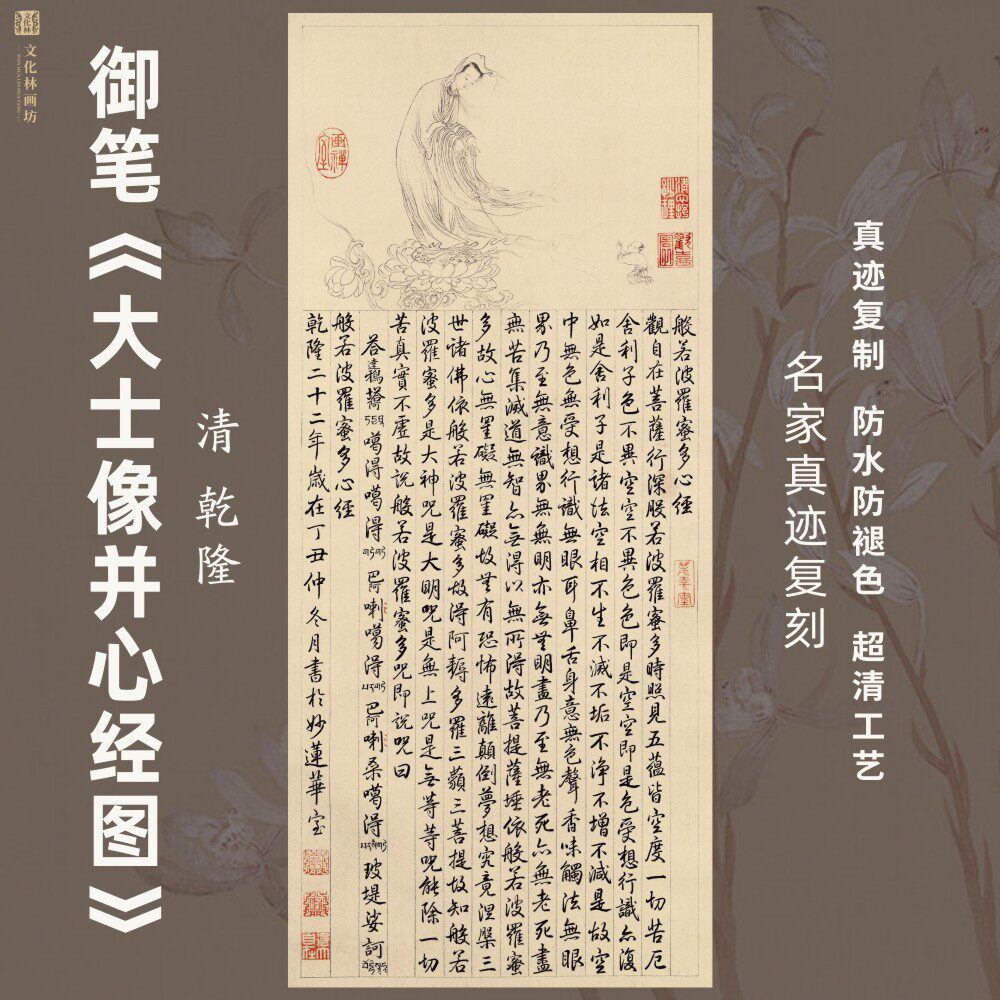 文化林画坊
御笔《大士像并心经图》
清 乾隆
般若波羅蜜多心經
觀自在菩薩行深般若波羅蜜多時照見五蘊皆空度一切苦厄
舍利子色不異空空不異色色即是空空即是色受想行識亦復
如是舍利子是諸法空相不生不滅不垢不淨不增不減是故空
中無色無受想行識無眼耳鼻舌身意無色聲香味觸法無眼
界乃至無意識界無無明亦無無明盡乃至無老死亦無老死盡
無苦集滅道無智亦無得以無所得故菩提薩埵依般若波羅蜜
多故心無罣礙無罣礙故無有恐怖遠離顛倒夢想究竟涅槃三
世諸佛依般若波羅蜜多故得阿耨多羅三藐三菩提故知般若
波羅蜜多是大神咒是大明咒是無上咒是無等等咒能除一切
苦真實不虛故說般若波羅蜜多咒即說咒曰
噶得噶得 巴阿喇噶得 巴阿喇桑噶得 玻堤娑訶
般若波羅蜜多心經
乾隆二十二年歲在丁丑仲冬月書於妙蓮華室
真迹复制 防水防褪色 超清工艺
名家真迹复刻